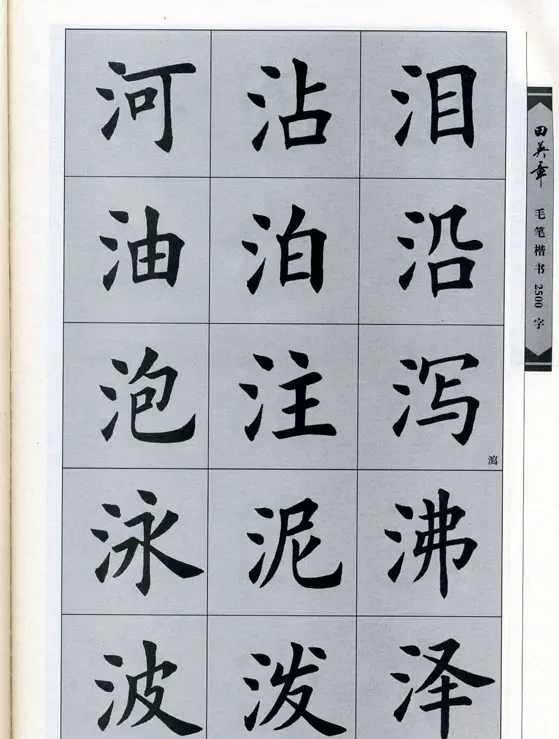 河 沾 泪
油 泊 沿
泡 注 泻
瀉
泳 泥 沸
波 泼 泽
田英章
毛笔楷书2500字